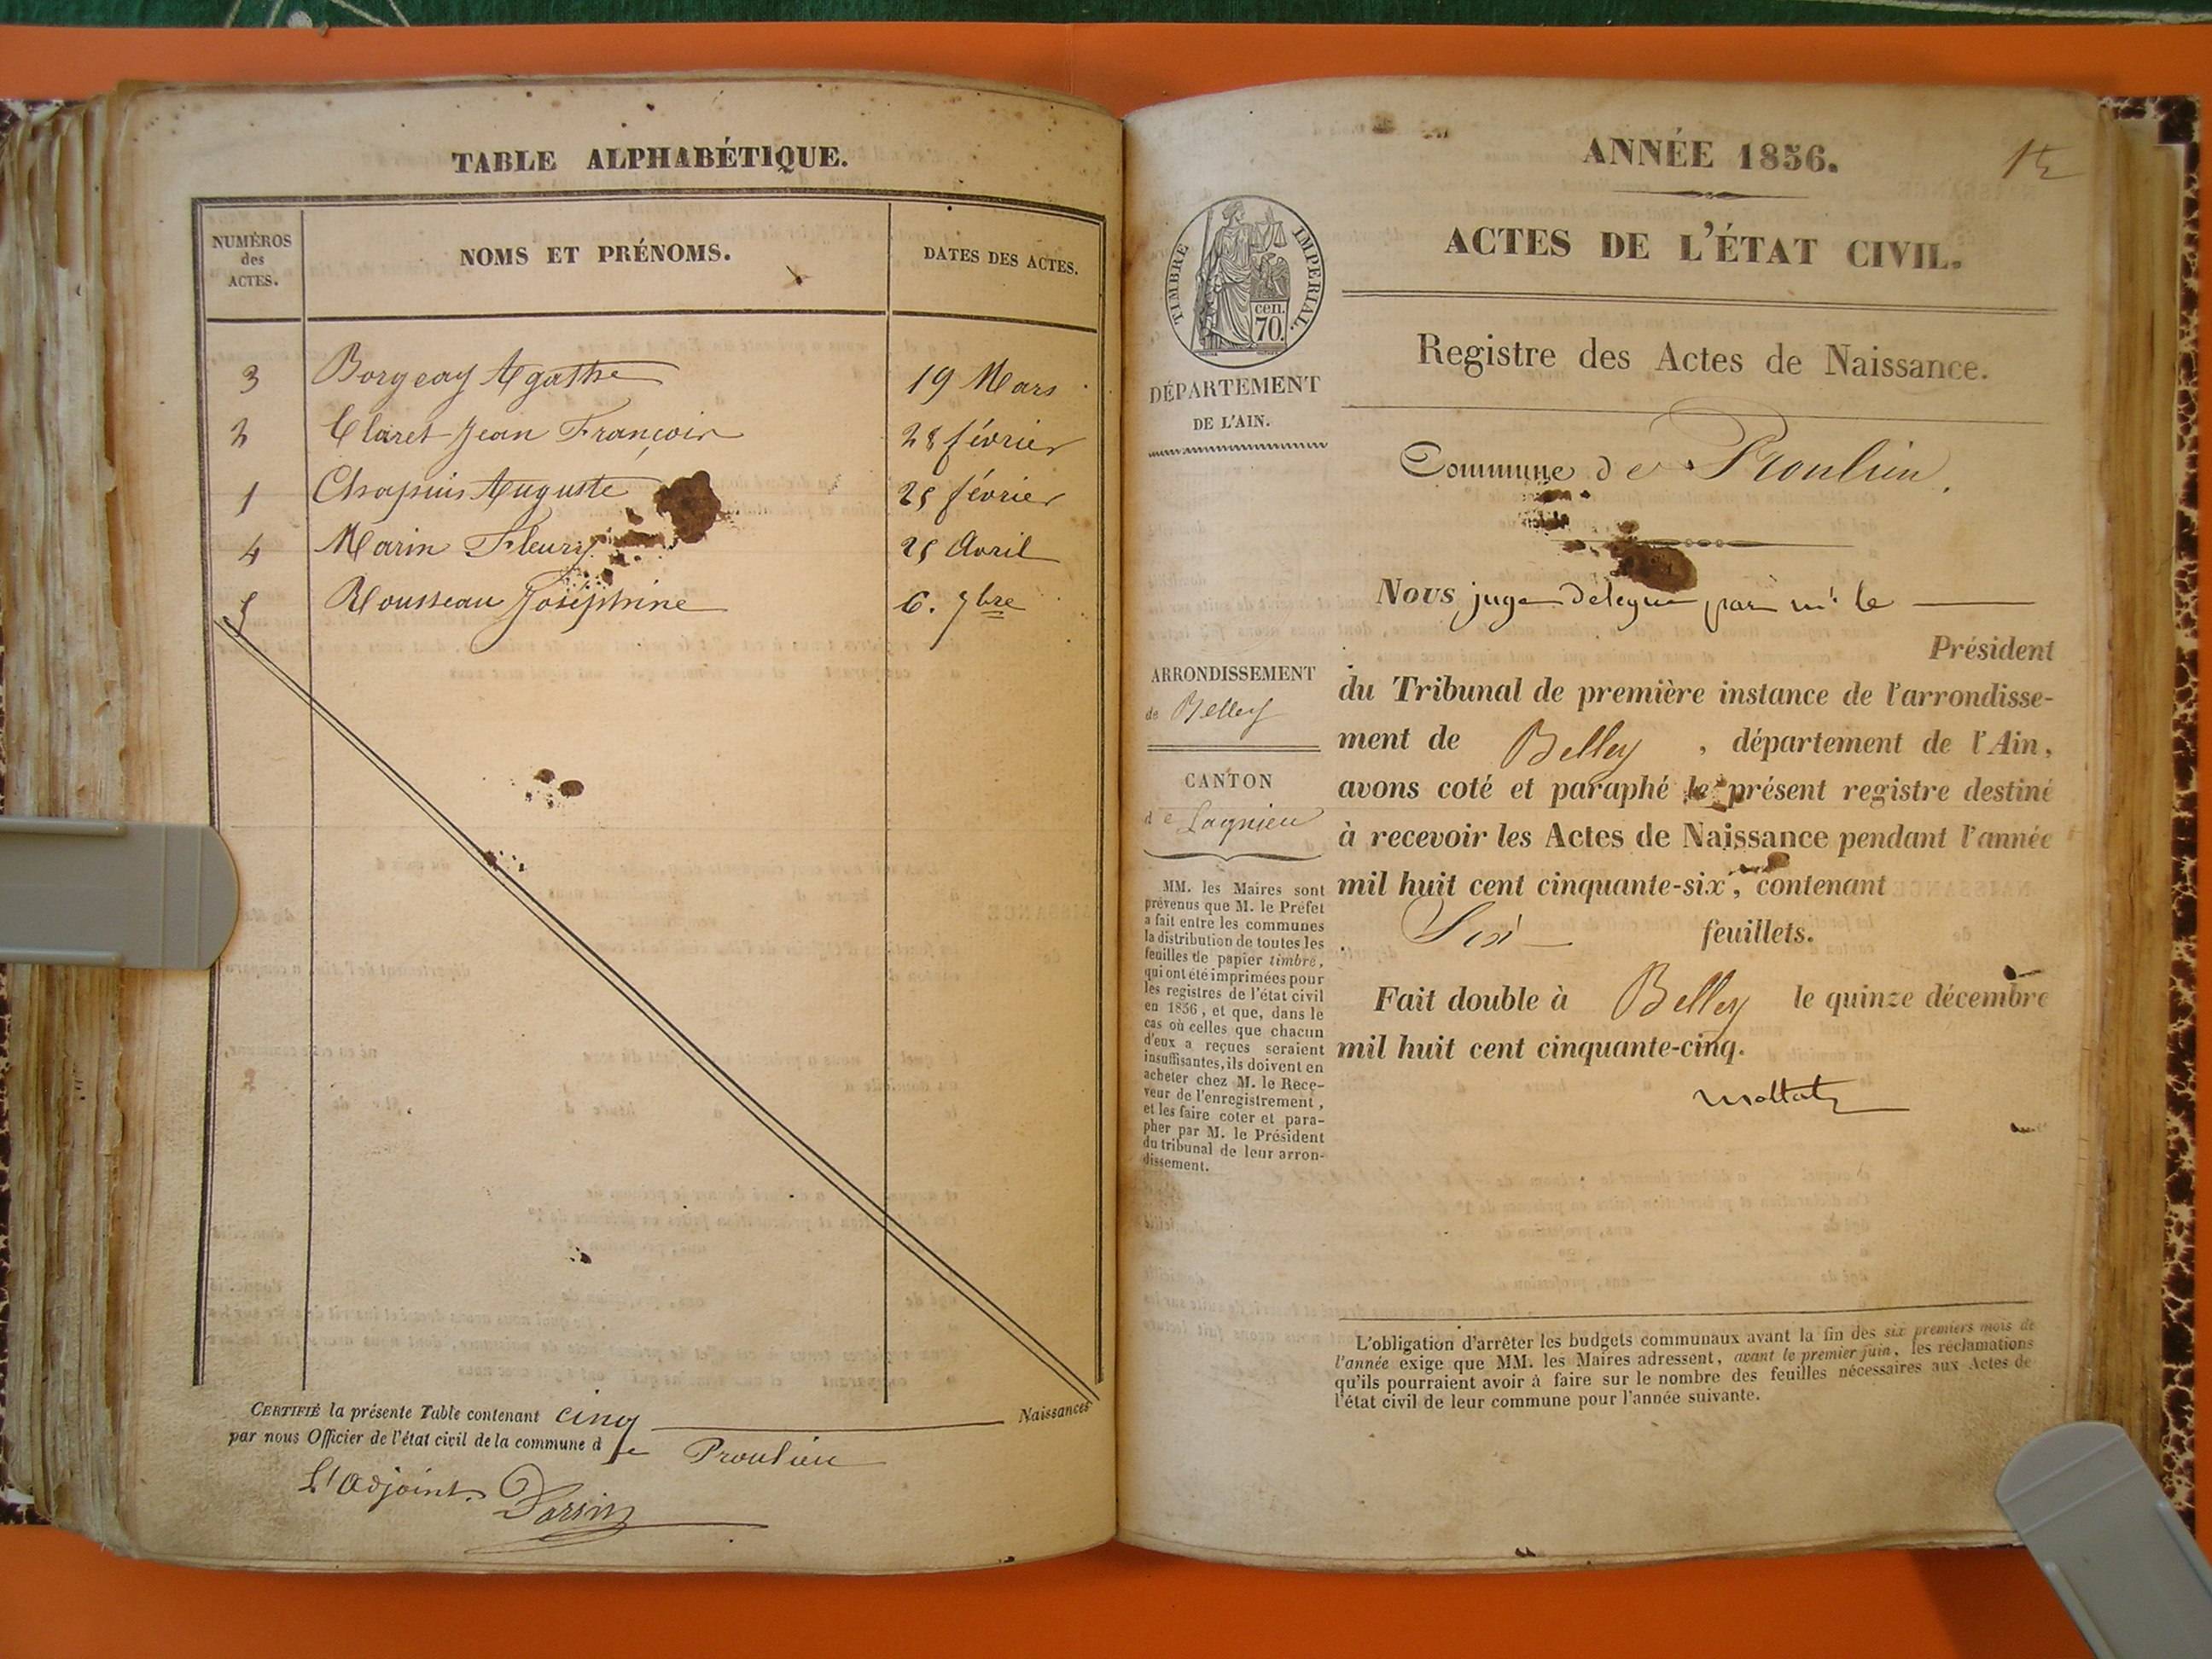 TABLE ALPHABÉTIQUE.
NUMÉROS des ACTES.
NOMS ET PRÉNOMS.
DATES DES ACTES.
3 Borgeay Agathe 19 Mars
2 Claret Jean François 28 février
1 Chapuis Auguste 25 février
4 Marin Fleury 25 Avril
5 Rousseau Joséphine 6. 7bre
CERTIFIÉ la présente Table contenant cinq Naissances
par nous Officier de l'état civil de la commune de Proulieu
L'adjoint.
ANNÉE 1856.
ACTES DE L'ÉTAT CIVIL.
TIMBRE IMPERIAL.
cen.
70.
DÉPARTEMENT
DE L'AIN.
Registre des Actes de Naissance.
Commune de Proulieu.
Nous juge delegué par mr. le
Président
du Tribunal de première instance de l'arrondisse-
ment de Belley, département de l'Ain,
avons coté et paraphé le présent registre destiné
à recevoir les Actes de Naissance pendant l'année
mil huit cent cinquante-six, contenant
Six feuillets.
Fait double à Belley le quinze décembre
mil huit cent cinquante-cinq.
ARRONDISSEMENT
de Belley
CANTON
de Lagnieu
MM. les Maires sont
prévenus que M. le Préfet
a fait entre les communes
la distribution de toutes les
feuilles de papier timbré,
qui ont été imprimées pour
les registres de l'état civil
en 1856, et que, dans le
cas où celles que chacun
d'eux a reçues seraient
insuffisantes, ils doivent en
acheter chez M. le Rece-
veur de l'enregistrement,
et les faire coter et para-
pher par M. le Président
du tribunal de leur arron-
dissement.
L'obligation d'arrêter les budgets communaux avant la fin des six premiers mois de
l'année exige que MM. les Maires adressent, avant le premier juin, les réclamations
qu'ils pourraient avoir à faire sur le nombre des feuilles nécessaires aux Actes de
l'état civil de leur commune pour l'année suivante.